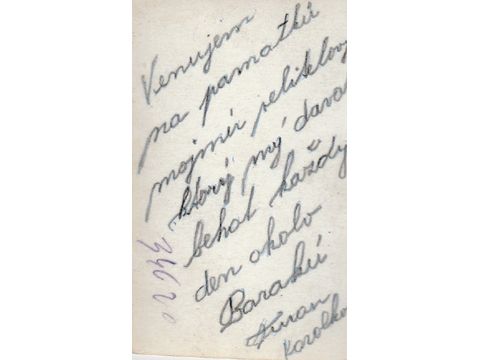 Venujem
na pamatkú
mojmu velitelovy
ktorý mý daval
behat každy
den okolo
Barakú
Karolko
34620